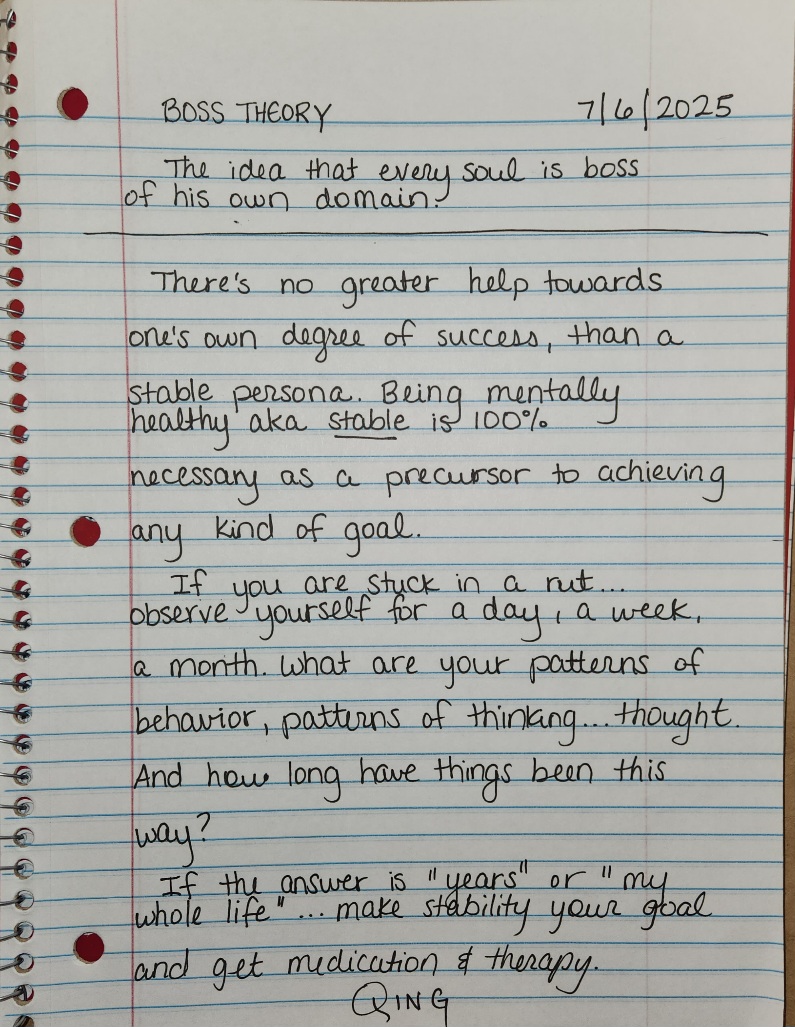 BOSS THEORY 7/6/2025
The idea that every soul is boss
of his own domain.
There's no greater help towards
one's own degree of success, than a
stable persona. Being mentally
healthy aka stable is 100%
necessary as a precursor to achieving
any kind of goal.
If you are stuck in a rut...
observe yourself for a day, a week,
a month. What are your patterns of
behavior, patterns of thinking...thought.
And how long have things been this
way?
If the answer is "years" or "my
whole life"... make stability your goal
and get medication & therapy.
QING